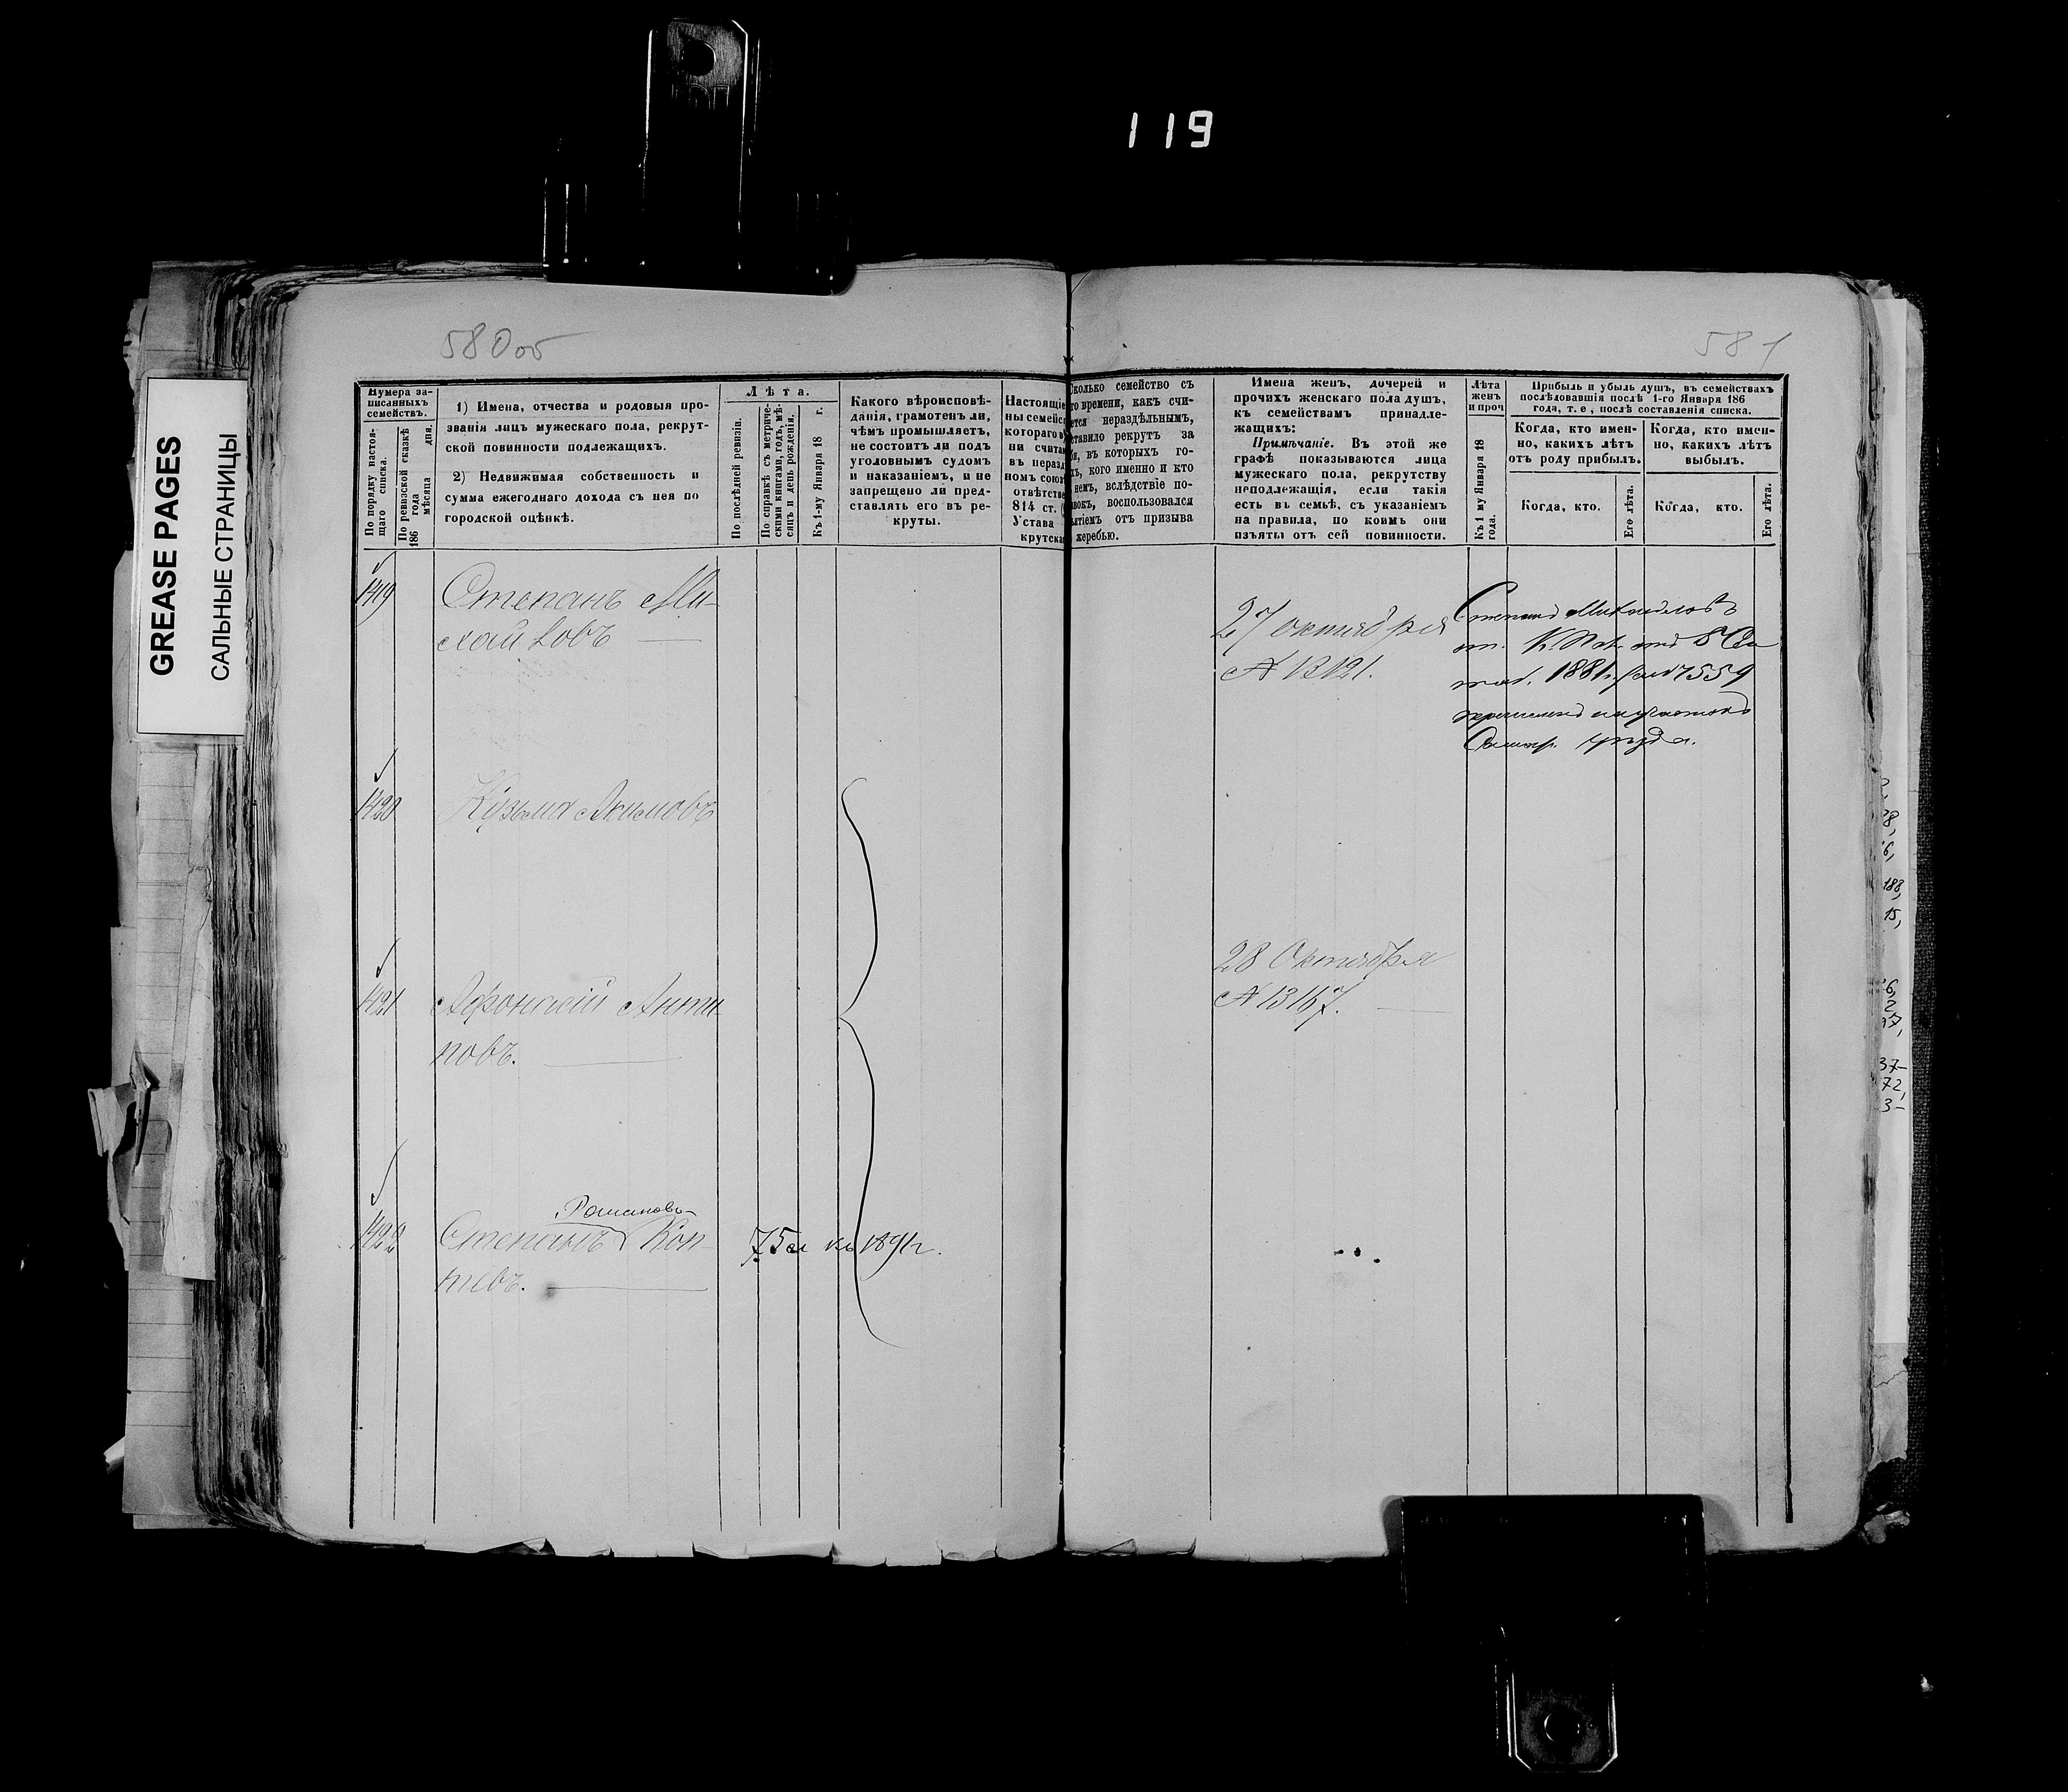 119
GREASE PAGES
САЛЬНЫЕ СТРАНИЦЫ
580об
581
Нумера за-
писанныхъ
семействъ.
По порядку настоя-
щаго списка.
По ревизской сказкѣ
186 года
мѣсяца дня.
1) Имена, отчества и родовыя про-
званія лицъ мужескаго пола, рекрут-
ской повинности подлежащихъ.
2) Недвижимая собственность и
сумма ежегоднаго дохода съ нея по
городской оцѣнкѣ.
Лѣта.
По послѣдней ревизіи.
По справкѣ съ метриче-
скими книгами, годъ, мѣ-
сяцъ и день рожденія.
Къ 1-му Января 18 г.
Какого вѣроисповѣ-
данія, грамотенъ ли,
чѣмъ промышляетъ,
не состоитъ ли подъ
уголовнымъ судомъ
и наказаніемъ, и не
запрещено ли пред-
ставлять его въ ре-
круты.
Настоящіе
ны семейс
котораго в
ни считаю
въ нераз
номъ союз
отвѣтстве
814 ст. (
Устава
крутска
сколько семейство съ
го времени, какъ счи-
ется нераздѣльнымъ,
ставило рекрутъ за
бя, въ которыхъ го-
хъ, кого именно и кто
немъ, вслѣдствіе по-
вокъ, воспользовался
ятіемъ отъ призыва
жеребью.
Имена женъ, дочерей и
прочихъ женскаго пола душъ,
къ семействамъ принадле-
жащихъ:
Примѣчаніе. Въ этой же
графѣ показываются лица
мужескаго пола, рекрутству
неподлежащія, если такія
есть въ семьѣ, съ указаніемъ
на правила, по коимъ они
изъяты отъ сей повинности.
Лѣта
женъ
и проч
Къ 1 му Января 18
года.
Прибыль и убыль душъ, въ семействахъ
послѣдовавшія послѣ 1-го Января 186
года, т. е, послѣ составленія списка.
Когда, кто имен-
но, какихъ лѣтъ
отъ роду прибылъ.
Когда, кто.
Его лѣта.
Когда, кто имен-
но, какихъ лѣтъ
выбылъ.
Когда, кто.
Его лѣта.
1419
Степанъ Ми-
хайловъ
27 октября
№ 13121.
Степанъ Михайловъ
1881г. 7559
уѣзда.
1420
Кузьма Акимовъ
1421
Афонасій Анти-
повъ.
28 Октября
№ 13167.
1422
Романовъ
Степанъ Коп-
тевъ.
75 л къ 1891г.